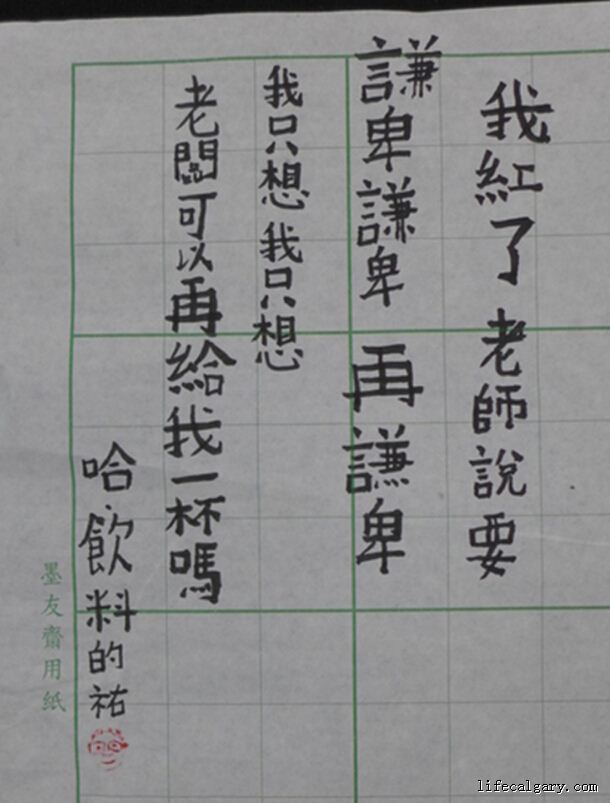 我紅了老師說要
謙卑謙卑再謙卑
我只想我只想
老闆可以再給我一杯嗎
哈飲料的祐
墨友齋用紙
lifecalgary.com